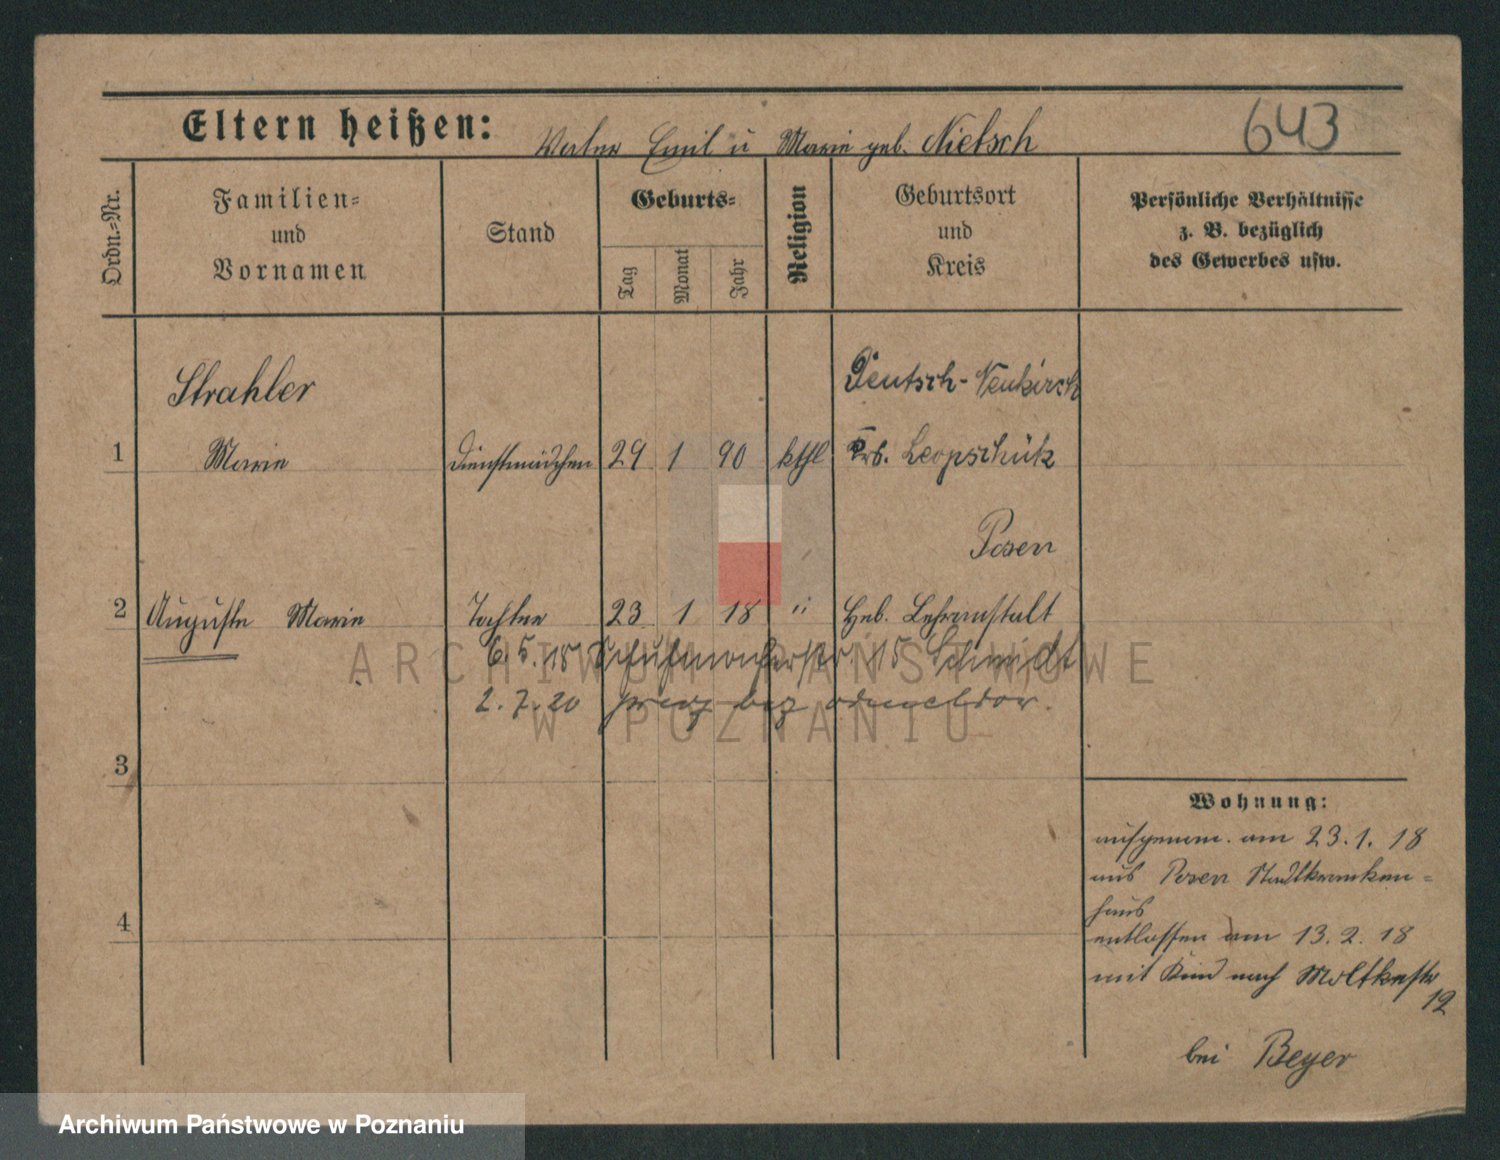 Eltern heißen: Vater Emil u Marie geb. Nietsch
643
Ordn.-Nr.
Familien-
und
Vornamen
Stand
Geburts-
Tag
Monat
Jahr
Religion
Geburtsort
und
Kreis
Persönliche Verhältnisse
z. B. bezüglich
des Gewerbes usw.
Strahler
Deutsch-Neukirch
1 Marie Dienstmädchen 29 1 90 kthl Krs. Leopschütz
Posen
2 Auguste Marie Tochter 23 1 18 " Heb. Lehranstalt
6.5.18 15 Schmidt
2.7.20 bez
3
4
Wohnung:
aufgenom. am 23.1.18
aus Posen Stadtkranken-
haus
entlassen am 13.2.18
mit Kind nach Moltkestr
12
bei Beyer
ARCHIWUM PAŃSTWOWE
W POZNANIU
Archiwum Państwowe w Poznaniu